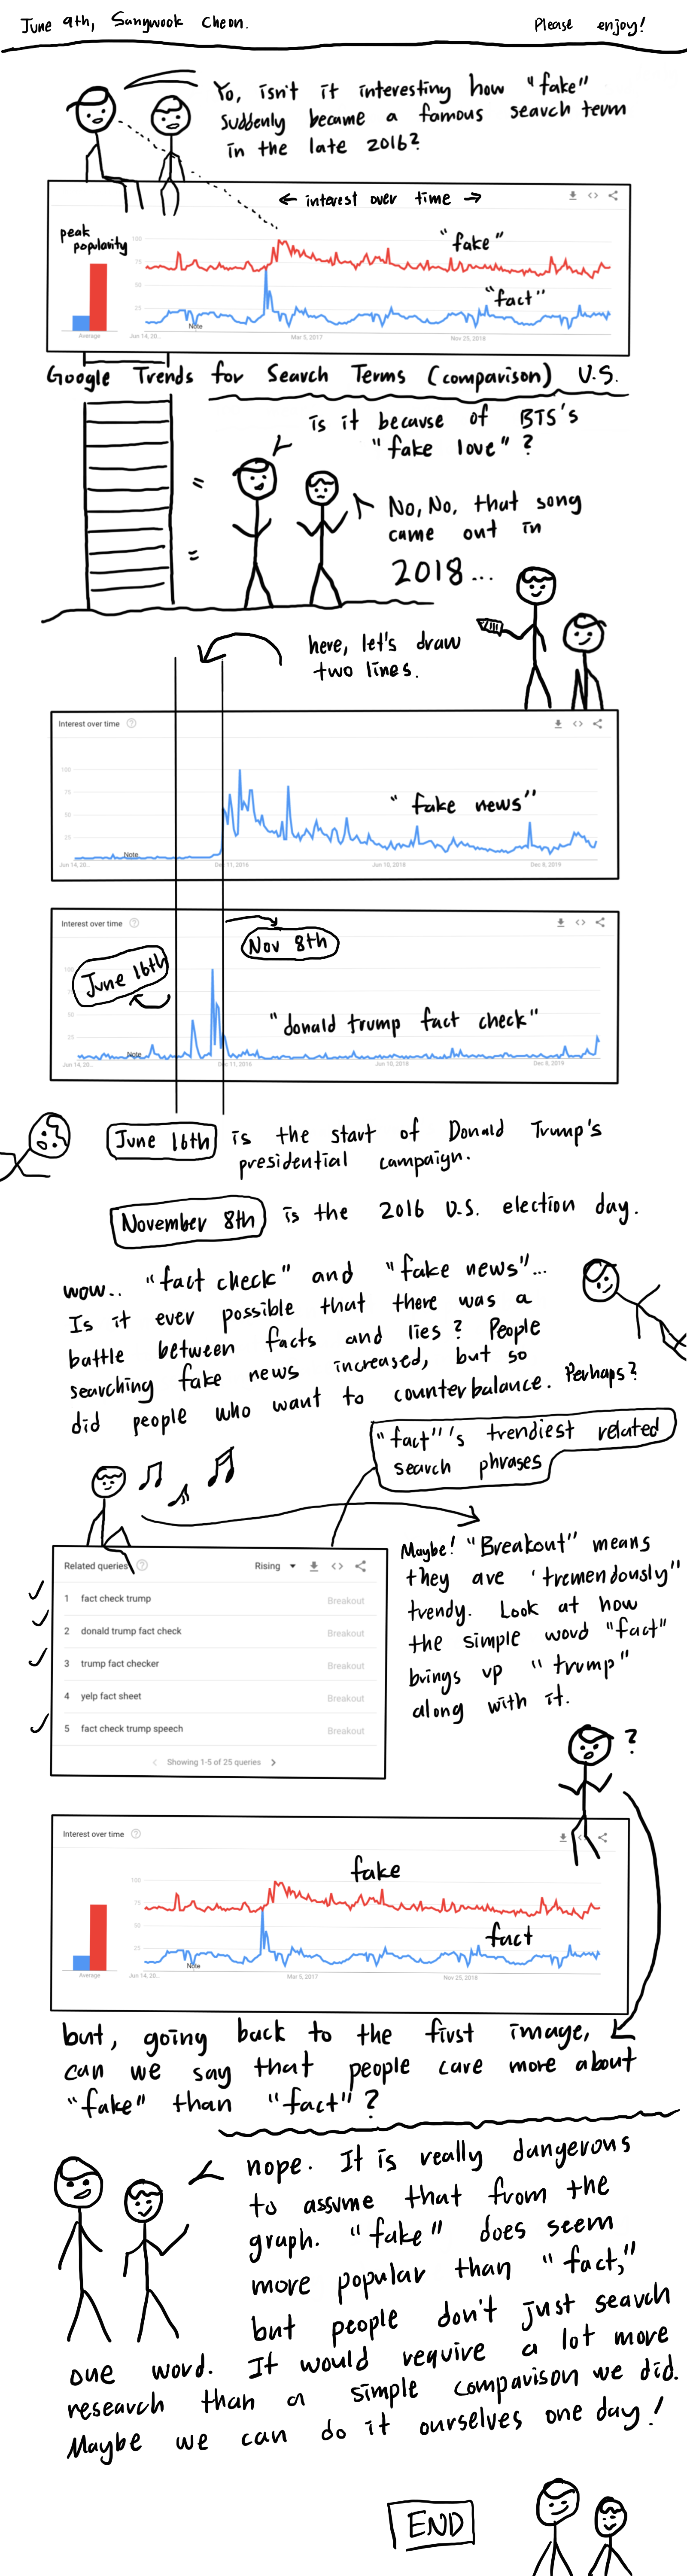 June 9th, Sangwook Cheon.
Please enjoy!
Yo, isn't it interesting how "fake"
suddenly became a famous search term
in the late 2016?
← interest over time →
peak
popularity
"fake"
"fact"
100
75
50
25
Note
Average
Jun 14, 20...
Mar 5, 2017
Nov 25, 2018
Google Trends for Search Terms (comparison) U.S.
is it because of BTS's
"fake love"?
=
=
No, No, that song
came out in
2018...
here, let's draw
two lines.
Interest over time
"fake news"
100
75
50
25
Note
Jun 14, 20...
Dec 11, 2016
Jun 10, 2018
Dec 8, 2019
Interest over time
Nov 8th
June 16th
"donald trump fact check"
100
75
50
25
Note
Jun 14, 20...
Dec 11, 2016
Jun 10, 2018
Dec 8, 2019
June 16th is the start of Donald Trump's
presidential campaign.
November 8th is the 2016 U.S. election day.
wow.. "fact check" and "fake news"...
Is it ever possible that there was a
battle between facts and lies? People
searching fake news increased, but so
did people who want to counterbalance. Perhaps?
"fact"'s trendiest related
search phrases
Related queries
Rising
1 fact check trump Breakout
2 donald trump fact check Breakout
3 trump fact checker Breakout
4 yelp fact sheet Breakout
5 fact check trump speech Breakout
Showing 1-5 of 25 queries
Maybe! "Breakout" means
they are 'tremendously"
trendy. Look at how
the simple word "fact"
brings up "trump"
along with it.
?
Interest over time
fake
fact
100
75
50
25
Note
Average
Jun 14, 20...
Mar 5, 2017
Nov 25, 2018
but, going back to the first image,
can we say that people care more about
"fake" than "fact"?
nope. It is really dangerous
to assume that from the
graph. "fake" does seem
more popular than "fact,"
but people don't just search
one word. It would require a lot more
research than a simple comparison we did.
Maybe we can do it ourselves one day!
END